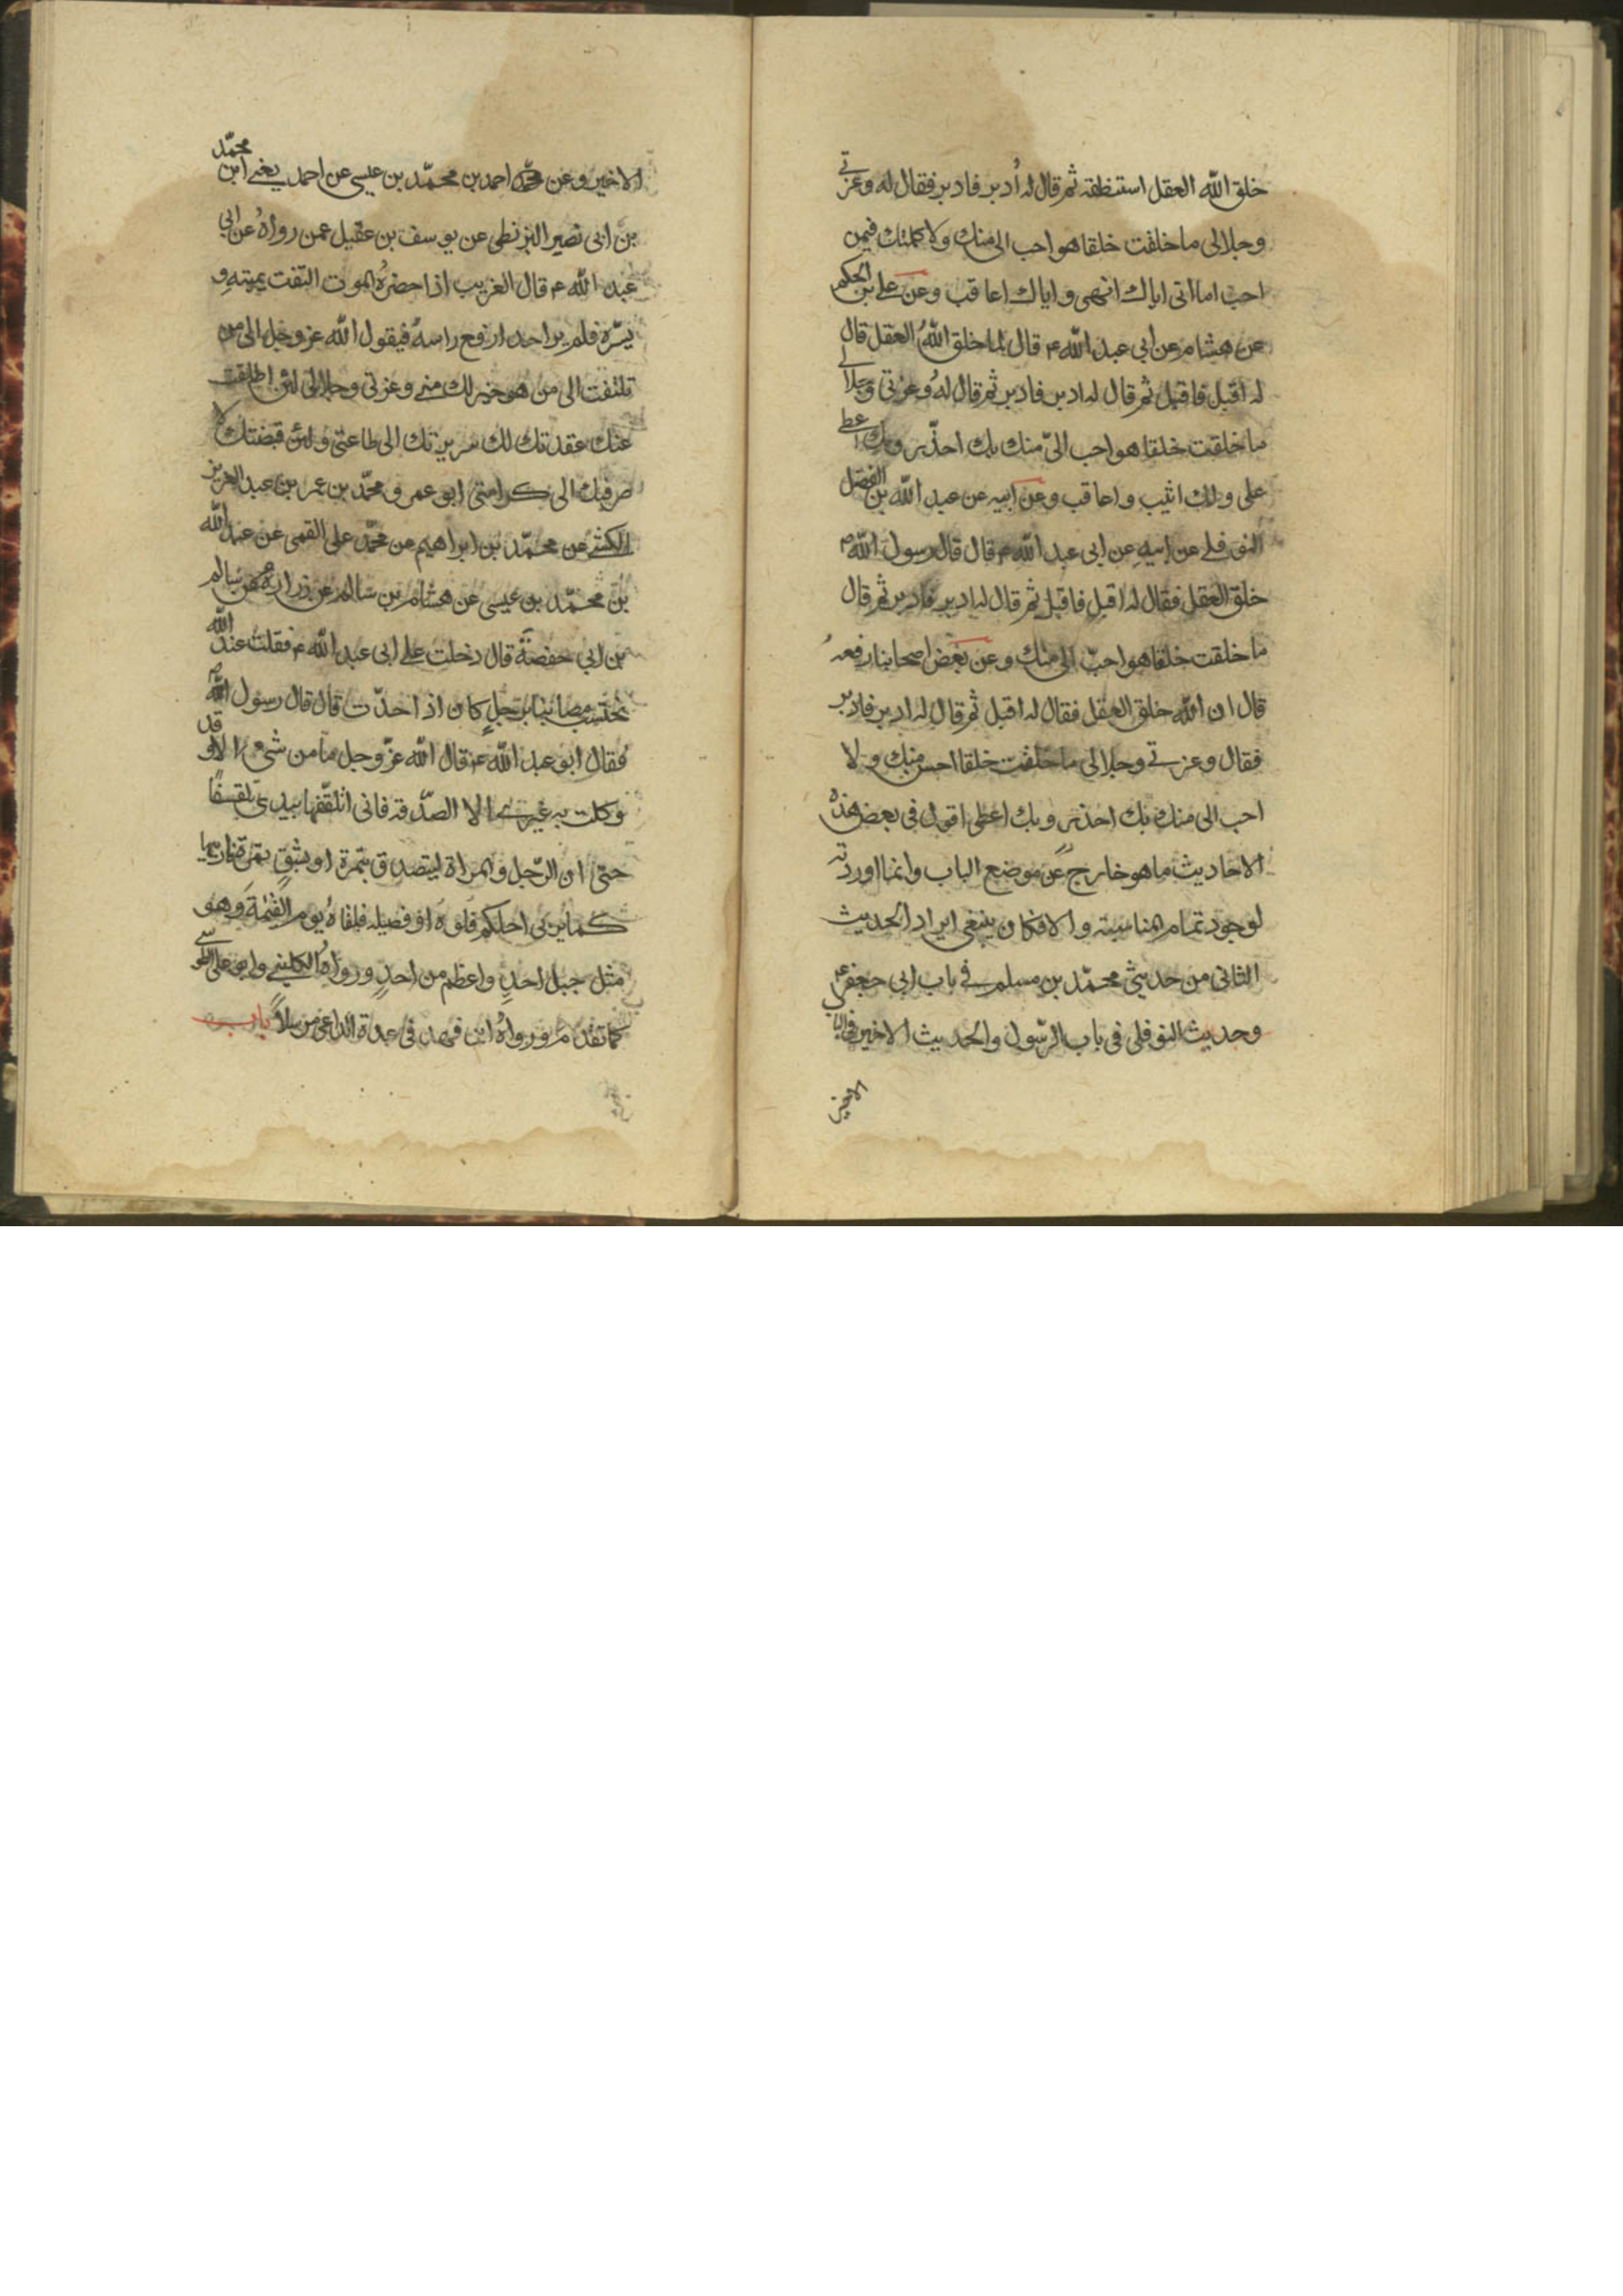 خلق الله العقل استنطقه ثم قال له أدبر فادبر فقال له وعزتي
وجلالى ما خلقت خلقا هو احب الى منك ولا كملتك فيمن
احب اما انى اياك انهى واياك اعاقب وعن على بن الحكم
عن هشام عن ابى عبد الله ع قال لما خلق الله العقل قال
له اقبل فاقبل ثم قال له ادبر فادبر ثم قال له وعزتى وجلالى
ما خلقت خلقا هو احب الىّ منك بك احذ وبك اعطى
على ولك اثيب واعاقب وعن ابيه عن عبد الله بن الفضل
النوفلى عن ابيه عن ابى عبد الله ع قال قال رسول الله ص
خلق العقل فقال له اقبل فاقبل ثم قال له ادبر فادبر ثم قال
ما خلقت خلقا هو احبّ الى منك وعن بعض اصحابنا رفعه
قال ان الله خلق العقل فقال له اقبل ثم قال له ادبر فادبر
فقال وعزتى وجلالى ما خلقت خلقا احسن منك ولا
احب الى منك بك احذ وبك اعطى اقول فى بعض هذه
الاحاديث ما هو خارج عن موضع الباب وانما اوردته
لوجود تمام المناسبة والا فكان ينبغى ايراد الحديث
الثانى من حديثى محمّد بن مسلم فى باب ابى جعفر ع
وحديث النوفلى فى باب الرّسول والحديث الاخير فى الباب
الاخير
الاخير وعن محمّد احمد بن محمّد بن عيسى عن احمد يعنى ابن محمّد
بن ابى نصير البزنطى عن يوسف بن عقيل عمن رواه عن ابى
عبد الله ع قال الغريب اذا حضره الموت التفت يمينه و
يسره فلم ير احدا رفع راسه فيقول الله عز وجل الى من
تلتفت الى من هو خير لك منى وعزتى وجلالى لئن اطلقت
عنك عقدتك لك الى طاعتى ولئن قبضتك لا
صرفنك الى كرامتى ابو عمرو محمّد بن عمر بن عبد العزيز
الكشى عن محمّد بن ابراهيم عن محمّد على القمى عن عبد الله
بن محمّد بن عيسى عن هشام بن سالم عن زراره عن سالم
بن ابى حفصة قال دخلت على ابى عبد الله ع فقلت عند الله
نحتسب مصائبنا برجلٍ كان اذا حدّث قال قال رسول الله ص
فقال ابو عبد الله ع قال الله عزّ وجل ما من شىء الا وقد
وكلت به غيرى الا الصّدقة فانى اتلقّفها بيدى تلقفًا
حتى ان الرّجل والمراة ليتصدق بتمرة او بشق تمرة فاربيها
كما يربى احدكم فلوه او فصيله فيلقاه يوم القيمة وهو
مثل جبل احدٍ واعظم من احدٍ ورواه الكلينى وابو على الطوسى
كما تقدم ورواه ابن فهد فى عدة الداعى مرسلاً باب